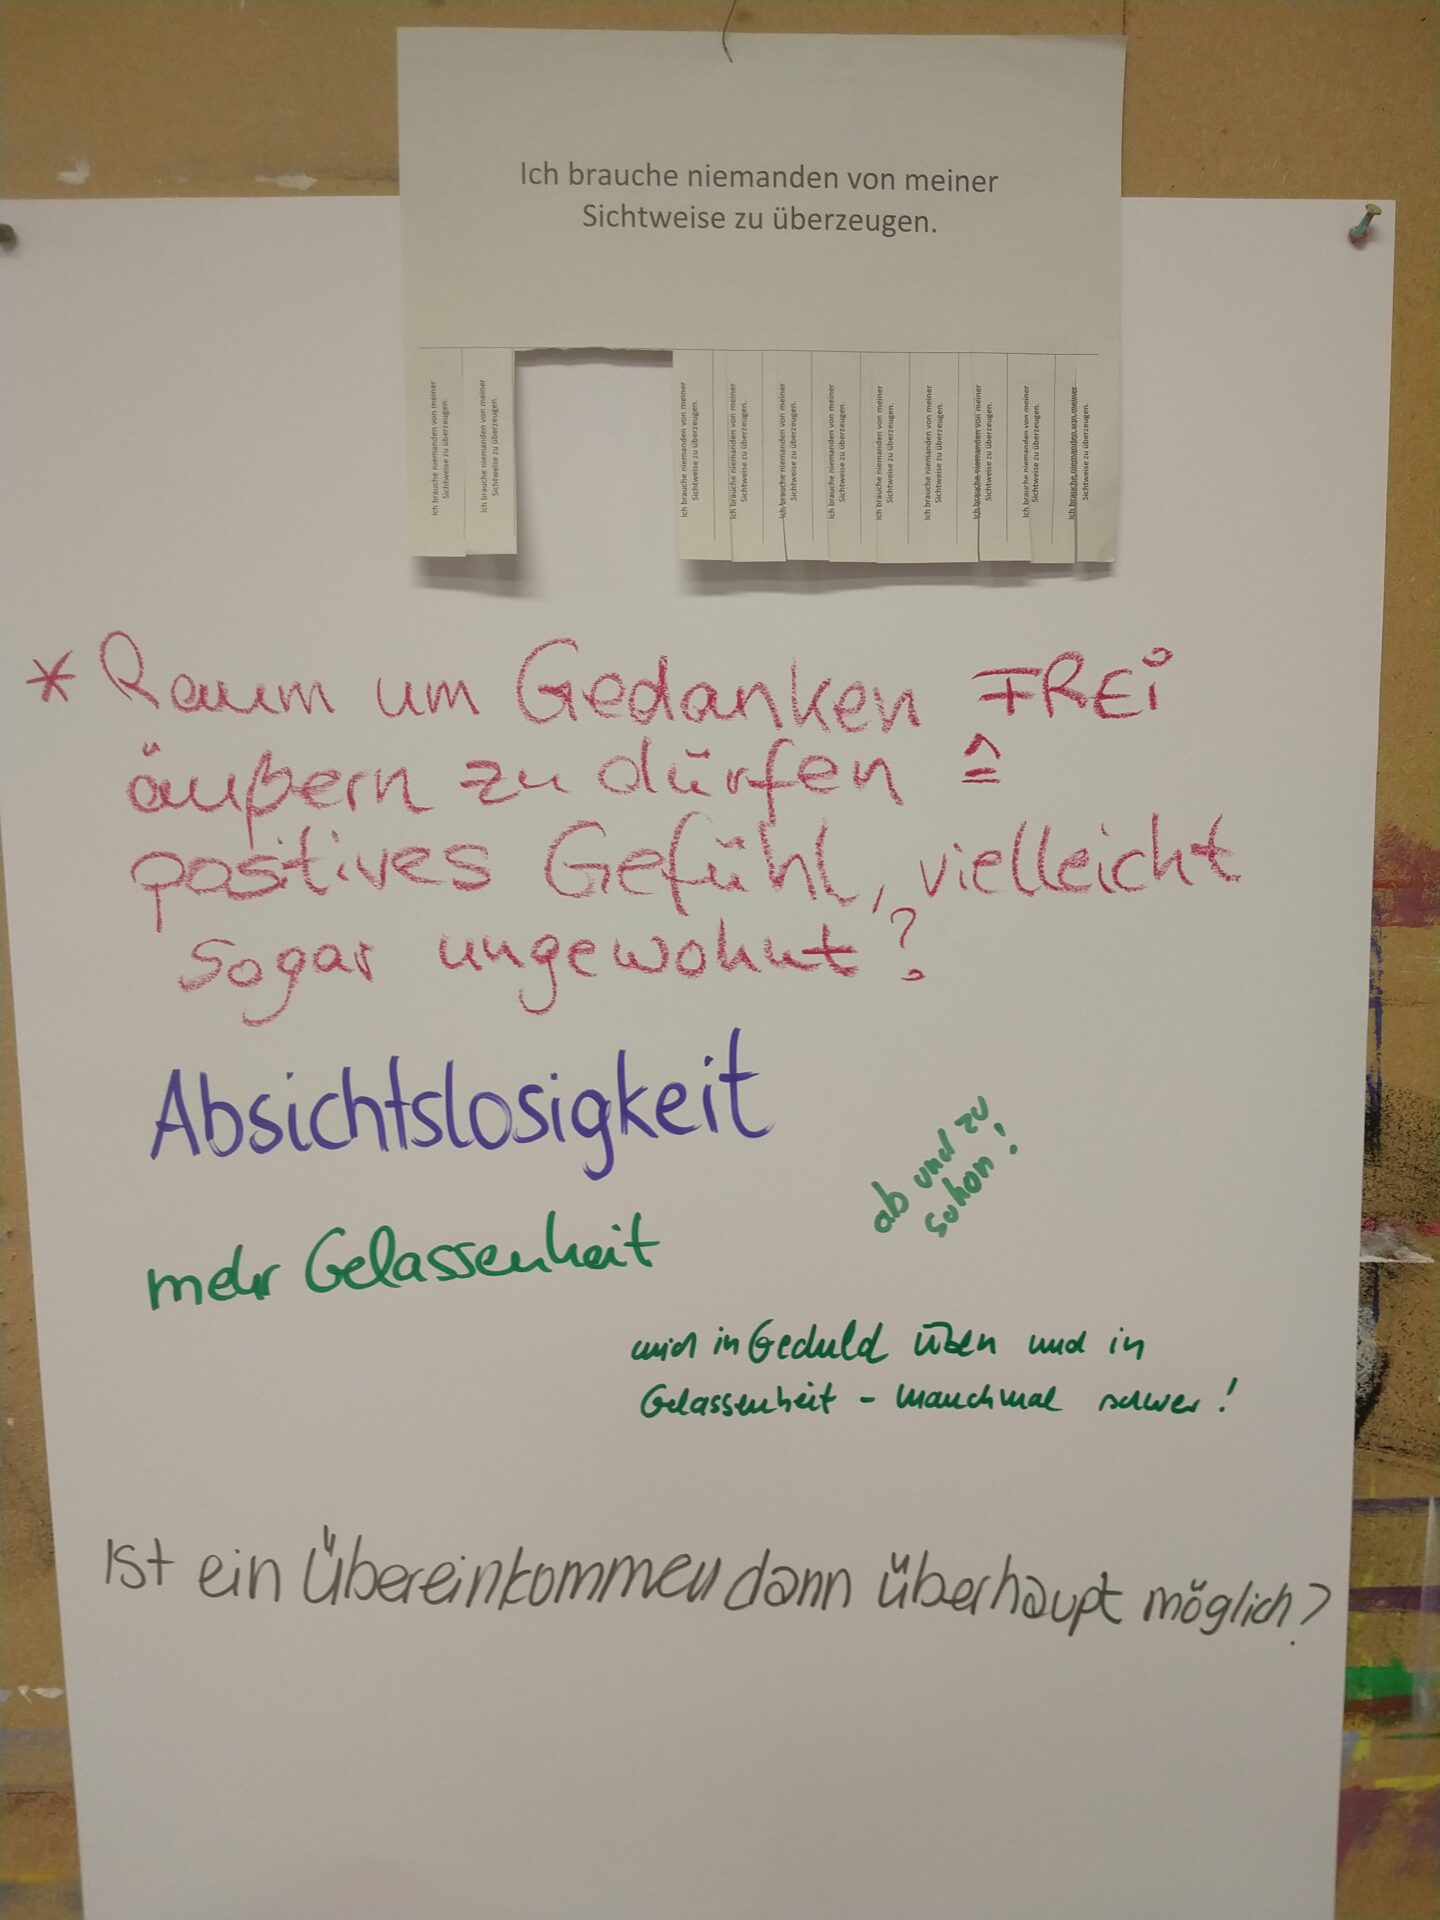 Ich brauche niemanden von meiner
Sichtweise zu überzeugen.
Ich brauche niemanden von meiner
Sichtweise zu überzeugen.
Ich brauche niemanden von meiner
Sichtweise zu überzeugen.
Ich brauche niemanden von meiner
Sichtweise zu überzeugen.
Ich brauche niemanden von meiner
Sichtweise zu überzeugen.
Ich brauche niemanden von meiner
Sichtweise zu überzeugen.
Ich brauche niemanden von meiner
Sichtweise zu überzeugen.
Ich brauche niemanden von meiner
Sichtweise zu überzeugen.
Ich brauche niemanden von meiner
Sichtweise zu überzeugen.
Ich brauche niemanden von meiner
Sichtweise zu überzeugen.
Ich brauche niemanden von meiner
Sichtweise zu überzeugen.
Ich brauche niemanden von meiner
Sichtweise zu überzeugen.
* Raum um Gedanken FREi
äußern zu dürfen ≙
positives Gefühl, vielleicht
sogar ungewohnt?
Absichtslosigkeit
ab und zu
schon!
mehr Gelassenheit
mich in Geduld üben und in
Gelassenheit - manchmal schwer!
Ist ein Übereinkommen dann überhaupt möglich?